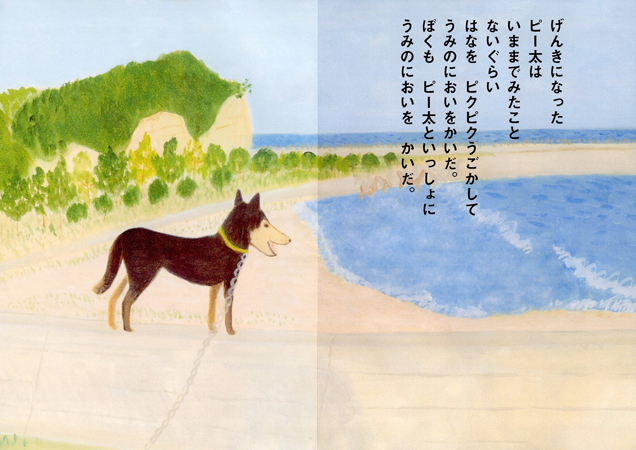 げんきになった
ピー太は
いままでみたこと
ないぐらい
はなを　ピクピクうごかして
うみのにおいをかいだ。
ぼくも　ピー太といっしょに
うみのにおいを　かいだ。